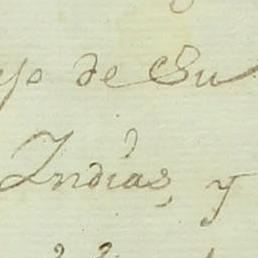 de Su
Indias, y